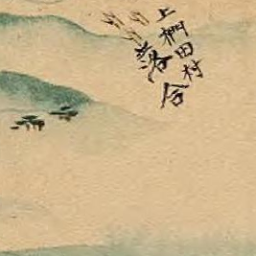 上椚田村
落合